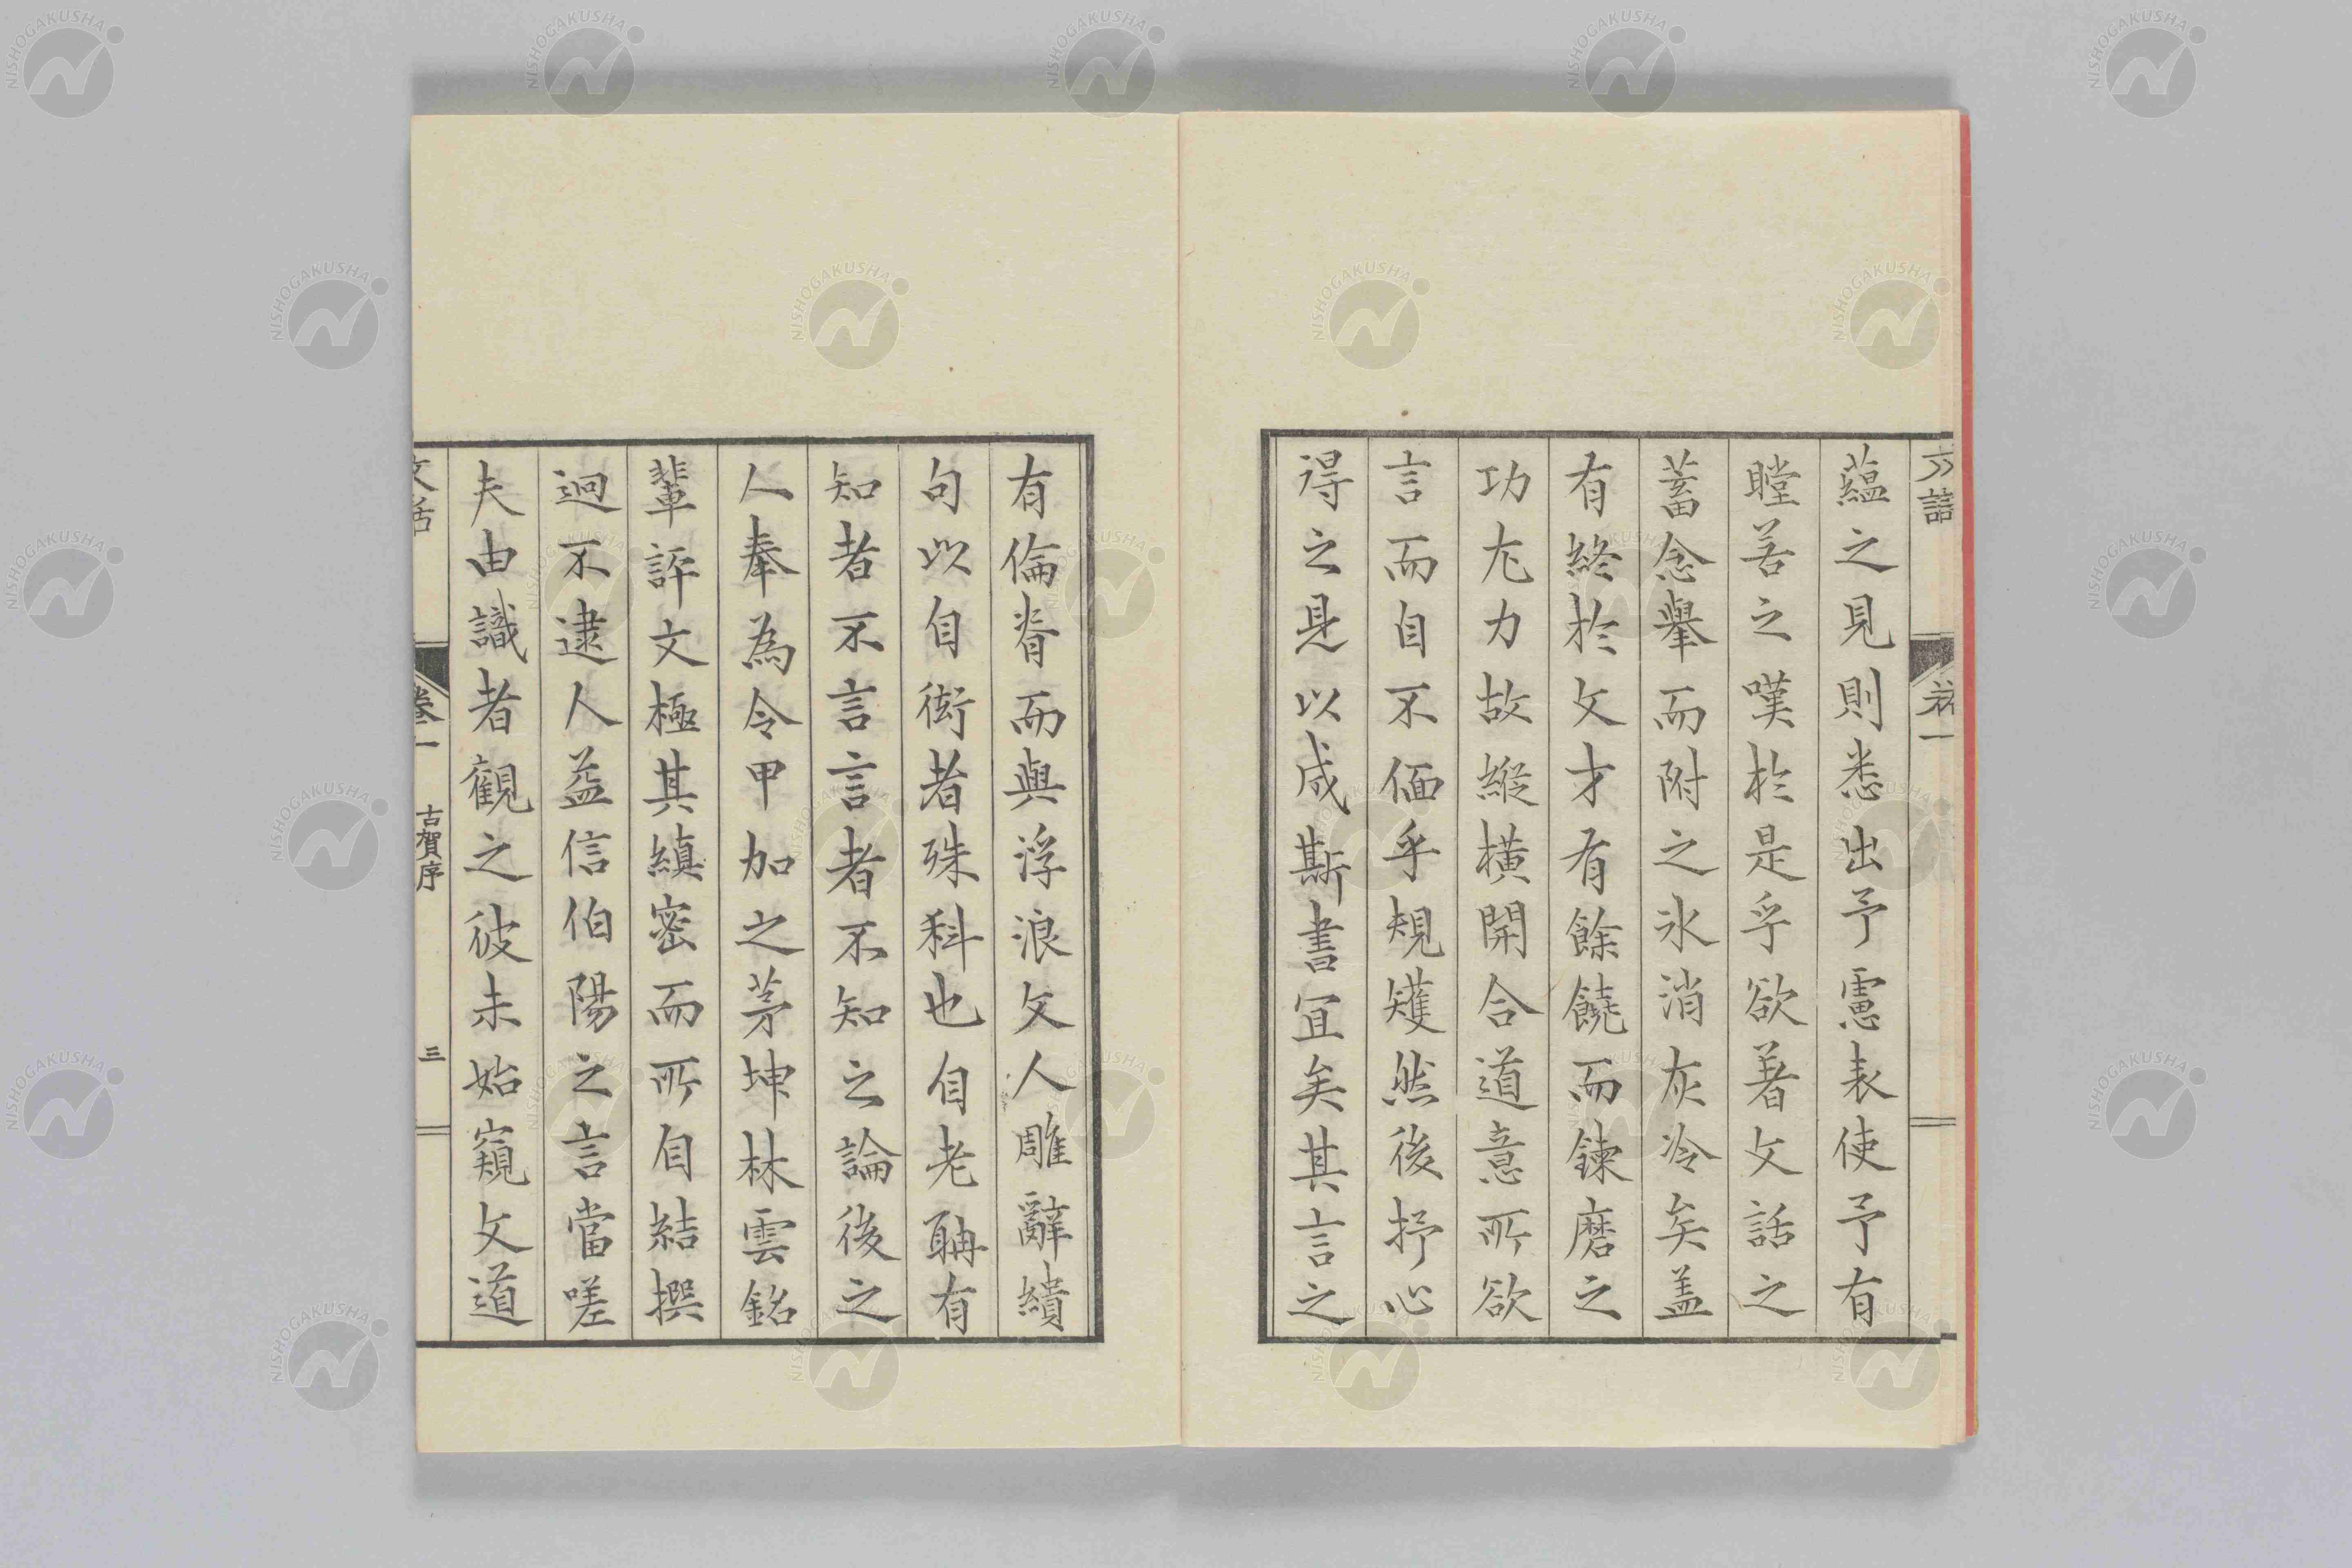 蘊之見則悉出予慮表使予有
瞠若之嘆於是乎欲著文話之
蓄念擧而附之氷消灰冷矣盖
有終於文才有餘饒而鍊磨之
功尤力故縱横開合道意所欲
言而自不偭乎規矱然後抒心
得之見以成斯書宜矣其言之
有倫脊而與浮浪文人雕辭繢
句以自衒者殊科也自老聃有
知者不言言者不知之論後之
人奉為令甲加之茅坤林雲銘
輩評文極其縝密而所自結撰
迥不逮人益信伯陽之言當嗟
夫由識者觀之彼未始窺文道
文話
卷一
古賀序
三
NISHOGAKUSHA